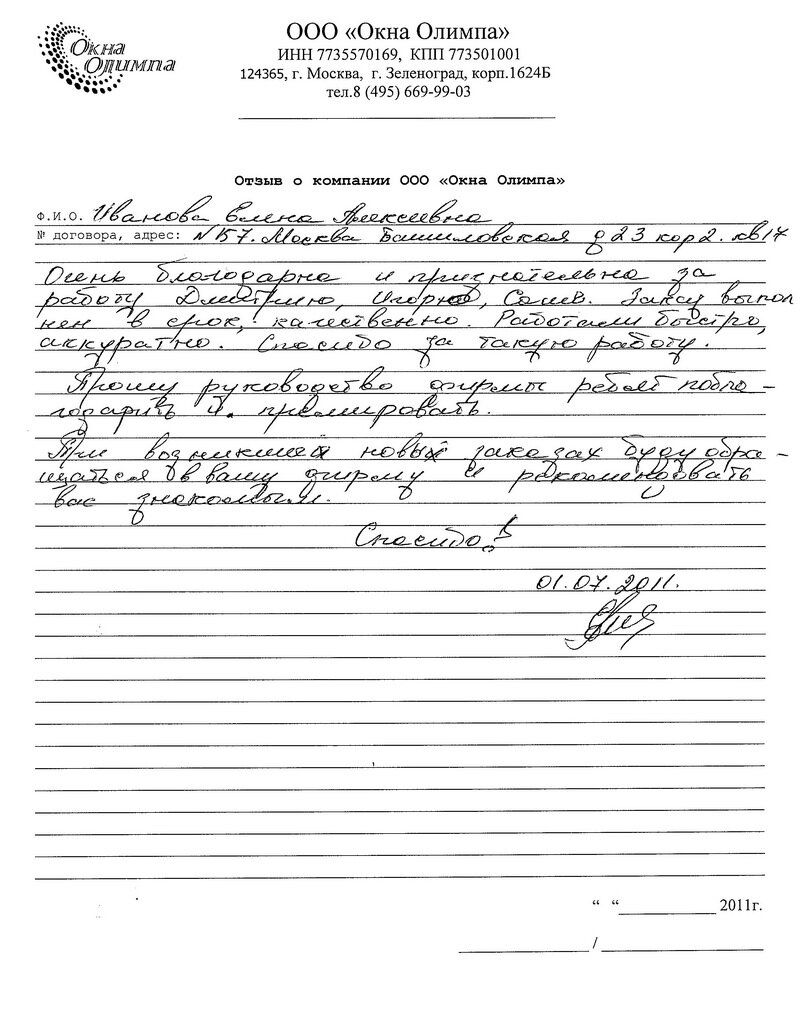 Окна
Олимпа
ООО «Окна Олимпа»
ИНН 7735570169, КПП 773501001
124365, г. Москва, г. Зеленоград, корп.1624Б
тел.8 (495) 669-99-03
Отзыв о компании ООО «Окна Олимпа»
Ф.И.О. Иванова Елена Алексеевна
№ договора, адрес: N 157. Москва Башиловская д 23 кор 2. кв 17
Очень благодарна и признательна за
работу Дмитрию, Игорю, Саше. Заказ выпол
нен в срок, качественно. Работали быстро,
аккуратно. Спасибо за такую работу.
Прошу руководство фирмы ребят побла-
годарить и премировать.
При возникшей новых заказах буду обра-
щаться в вашу фирму и рекомендовать
вас знакомым.
Спасибо!
01.07.2011.
“ “ 2011г.
/